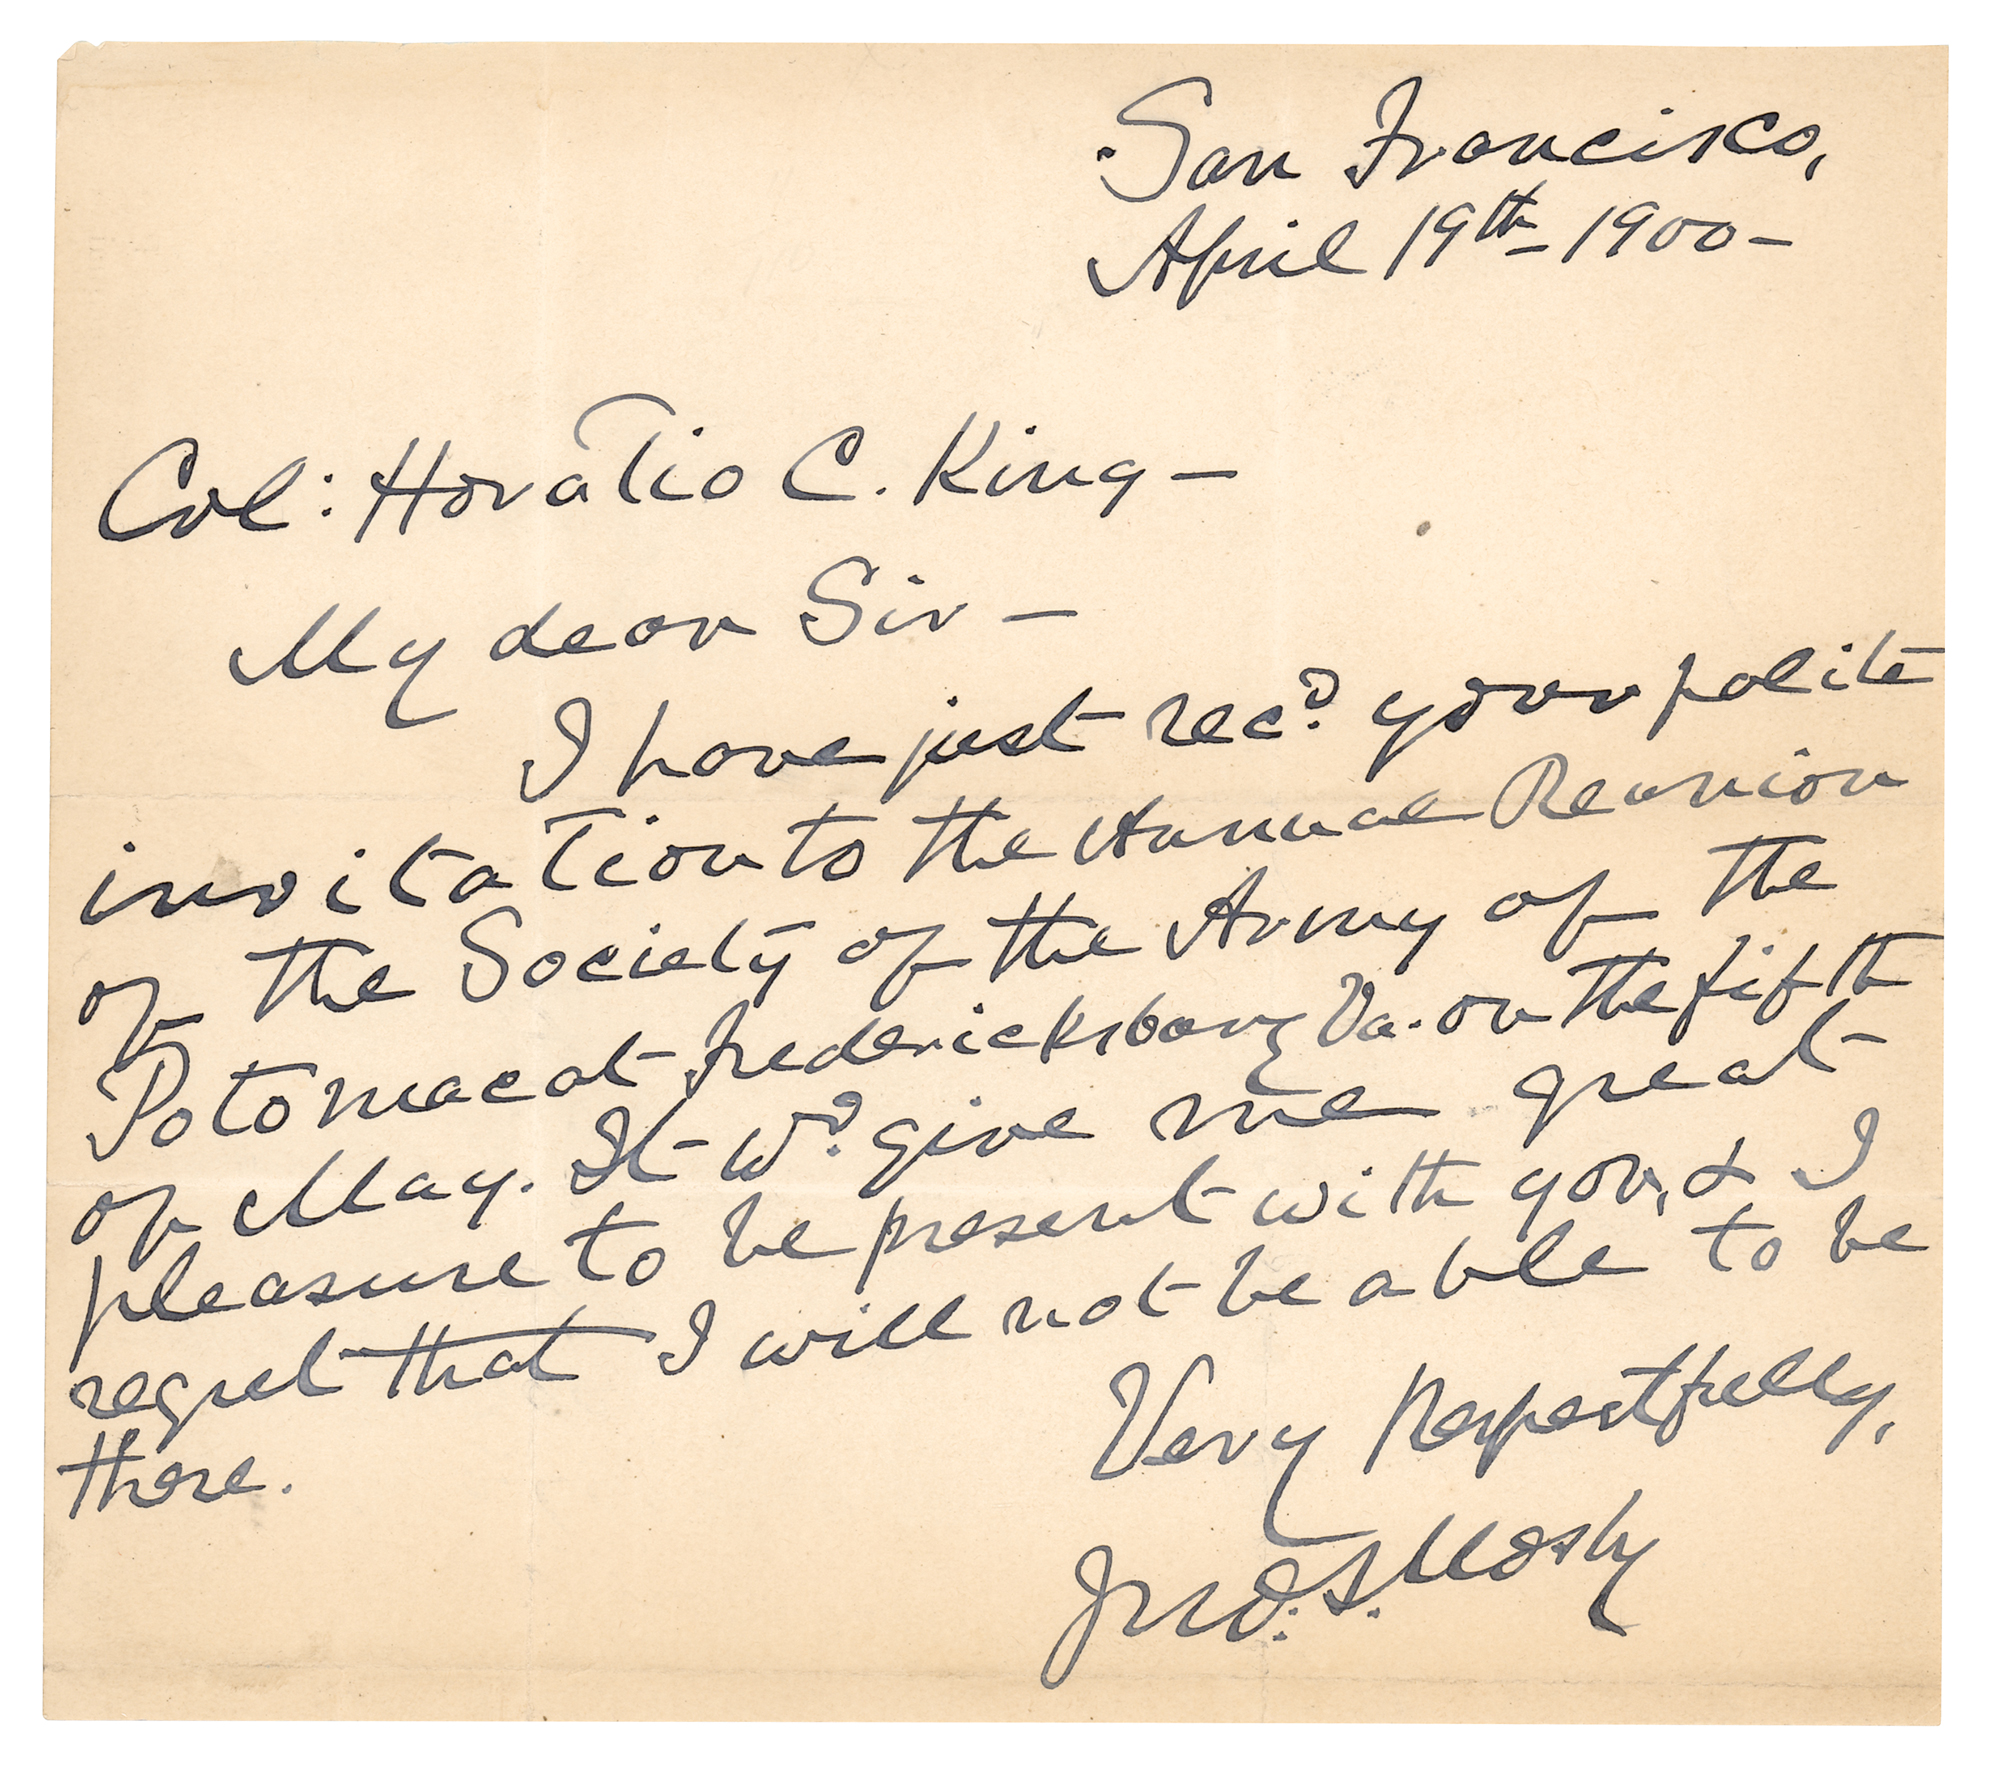 San Francisco,
April 19th - 1900 -
Col: Horatio C. King -
My dear Sir -
I have just recd. your polite
invitation to the Annual Reunion
of the Society of the Army of the
Potomac at Fredericksburg Va. on the fifth
of May. It wd. give me great
pleasure to be present with you, & I
regret that I will not be able to be
there.
Very Respectfully,
Jno. S. Mosby